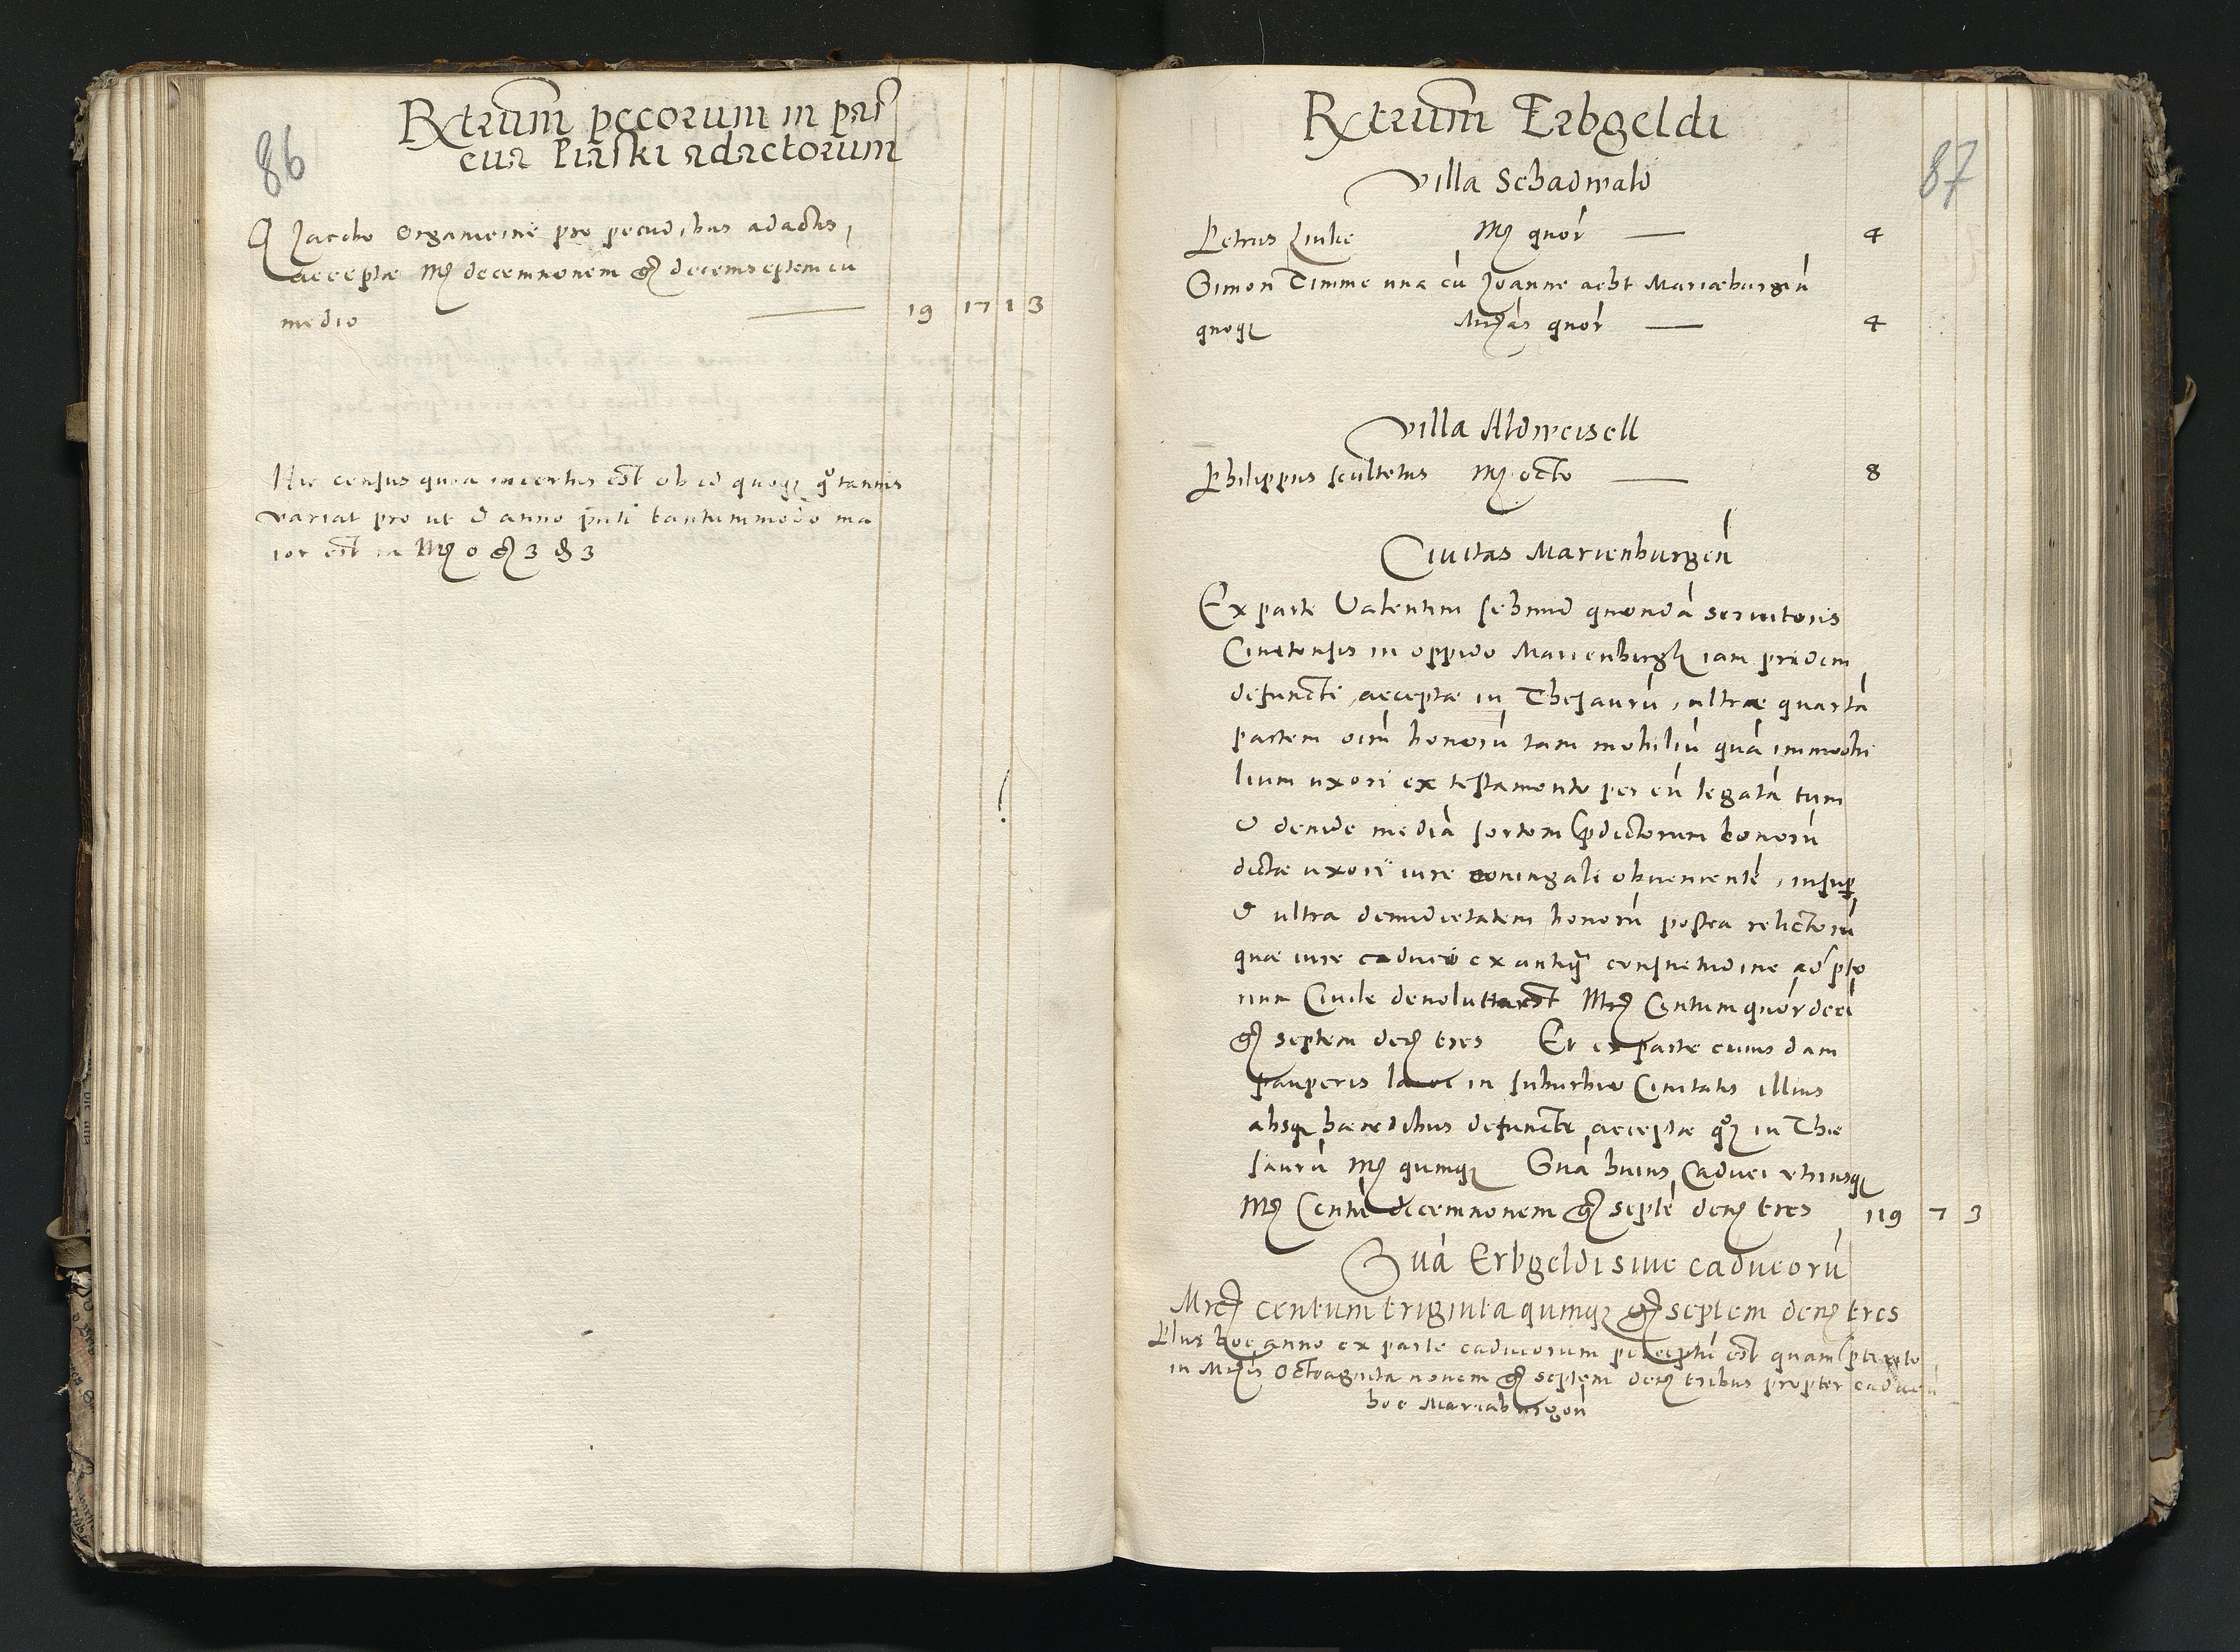 86
Rxtrum pecorum in par
cua Piaski adactorum
A Jacobo Organicine pro pecudibus adactis,
acceptae Mc decemnonem gr decemseptem cu
medio — 19 17 1 3
Hic census quia incertus est ob id quoque qotannis
variat pro ut & anno pnti tantummodo ma
ior est in Mc 0 gr 3 d 3
87
Rxtrum Erbgeldi
Villa Schadwald
Petrus Linke Mc quor — 4
Simon Timme una cu Joanne acht Mariaeburgen
quoq Mrcas quor — 4
Villa Aldweisell
Philippus scultetus Mc octo — 8
Civitas Marienburgen
Ex parte Valentini schmid quonda servitoris
Civitensis in oppido Marienburgk iam pridem
defuncti acceptae in Thesauru, ultra quarta
partem oim bonoru tam mobiliu qua immobi
lium uxori ex testamento per eu legata tum
& deinde media sortem pdictorum bonoru
dictae uxori iure coniugali obveniente, insup
& ultra dimidietatem bonoru postea relictoru
quae iure caduco ex antiq consuetudine ad pto
rium Civile devoluta est Mrc Centum quordeci
gr septem den tres Et ex parte cuiusdam
pauperis laici in suburbio Civitatis illius
absq haeredibus defuncti acceptae qoq in The
sauru Mc quinq Sua huius Caduci utriusq
Mc Centu decemnonem gr septe den tres 119 7 3
Sua Erbgeldi sive caducoru
Mrc centum triginta quinq gr septem den tres
Plus hoc anno ex parte caducorum perceptu est quam pterito
in Mrcis Octoaginta novem gr septem den tribus propter caducu
hoc Mariaburgen